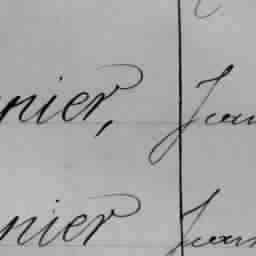 nier, Jean
nier Jean